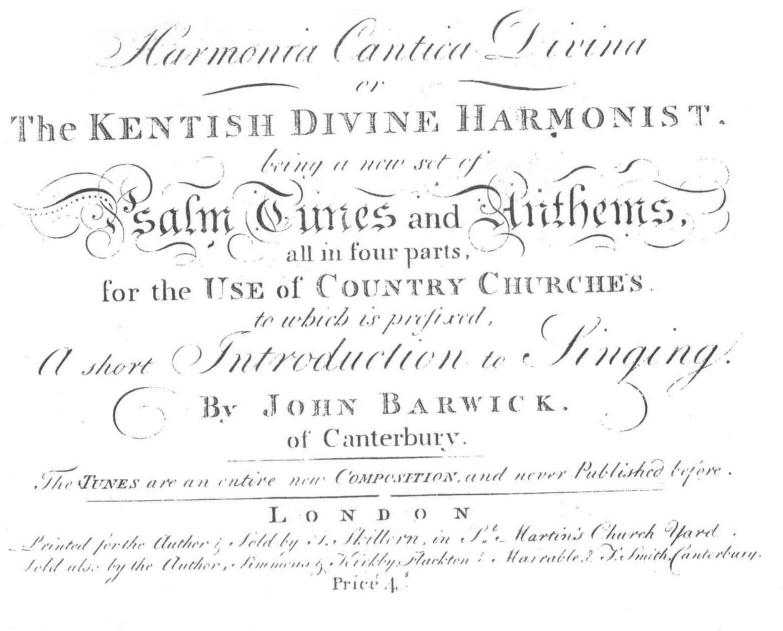 Harmonia Cantica Divina
or
The KENTISH DIVINE HARMONIST.
being a new set of
Psalm Tunes and Anthems,
all in four parts,
for the USE of COUNTRY CHURCHE'S.
to which is prefixed,
A short Introduction to Singing.
By JOHN BARWICK.
of Canterbury.
The TUNES are an entire new COMPOSITION, and never Publish'd before.
LONDON
Printed for the Author & Sold by Skillern, in St. Martin's Church Yard.
Sold also by the Author, Simmons & Kirkby, Flackton & Marrable, & T. Smith, Canterbury.
Price 4s